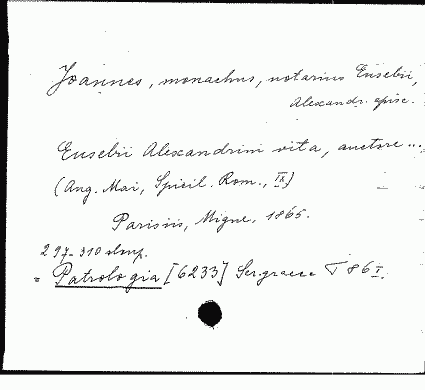 Joannes, monachus, notarius Eusebii,
Alexandr. episc.
Eusebii Alexandrini vita, auctore ...
(Ang. Mai, Spicil. Rom., IX)
Parisiis, Migne, 1865.
297-310 sloup.
= Patrologia [6233] Ser. graece T 86 I.